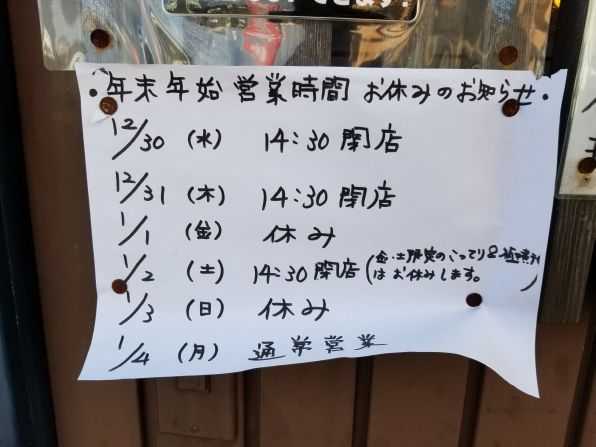 ・年末年始営業時間 お休みのお知らせ・
12/30 (水) 14:30閉店
12/31 (木) 14:30閉店
1/1 (金) 休み
1/2 (土) 14:30閉店 (金・土限定のこってり&
はお休みします。)
1/3 (日) 休み
1/4 (月) 通常営業